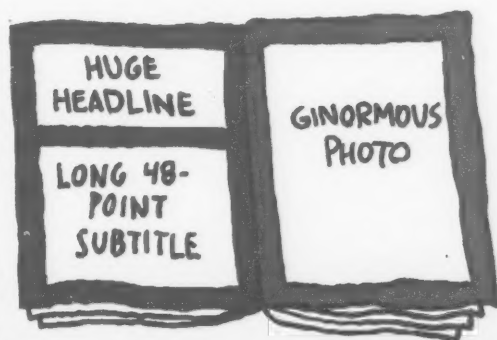 HUGE
HEADLINE
LONG 48-
POINT
SUBTITLE
GINORMOUS
PHOTO